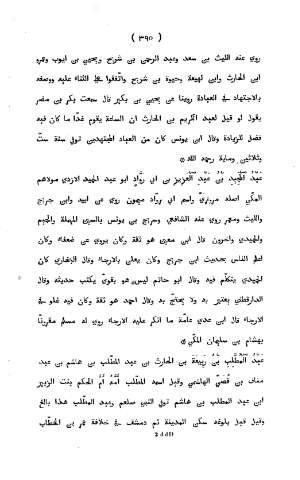 ( ٣٩٥ )
روى عنه الليث بن سعد وعبد الرحمن بن شريح ويحيى بن ايوب وعمرو
ابن الحارث وابن لهيعة وحيوة بن شريح واتفقوا على الثناء عليه ووصفه
بالاجتهاد فى العبادة روينا عن يحيى بن بكير قال سمعت بكر بن مضر
يقول لو قيل لعبد الكريم بن الحارث ان الساعة يقوم غدًا ما كان فيه
فضل للزيادة وقال ابن يونس كان من العباد المجتهدين توفى سنة ستّ
وثلاثين وماية رحمه الله ۞
عَبْدُ الْمَجِيدِ بْنُ عَبْدِ الْعَزِيزِ بن ابى روّاد ابو عبد المجيد الازدى مولاهم
المكى اصله مروزىّ واسم ابى رواد ميمون روى عن ابيه وابن جريج
والليث ومعمر روى عنه الشافعى وسريج بن يونس بالسين المهملة والجيم
والحميدى واخرون قال ابن معين هو ثقة وكان يروى عن ضعفاء وكان
اعلم الناس بحديث ابن جريج وكان يعلن بالارجاء وقال البخارى كان
الحميدى يتكلّم فيه وقال ابو حاتم ليس هو بقوىّ يكتب حديثه وقال
الدارقطنى يعتبر به ولا يحتجّ به وقال احمد هو ثقة وكان فيه غلو فى
الارجاء قال ابن عدى عامّة ما انكر عليه الارجاء روى له مسلم مقرونًا
بهشام بن سليمان المكى ۞
عَبْدُ الْمُطَّلِب بْنُ رَبِيعَةَ بن الحارث بن عبد المطلب بن هاشم بن عبد
مناف بن قُصىّ الهاشمى وقيل اسمه المطلب أُمّه أُمّ الحكم بنت الزبير
ابن عبد المطلب بن هاشم توفى النبى صلعم وعبد المطلب هذا بالغ
وقيل قبل بلوغه سكن المدينة ثم دمشق فى خلافة عمر بن الخطاب